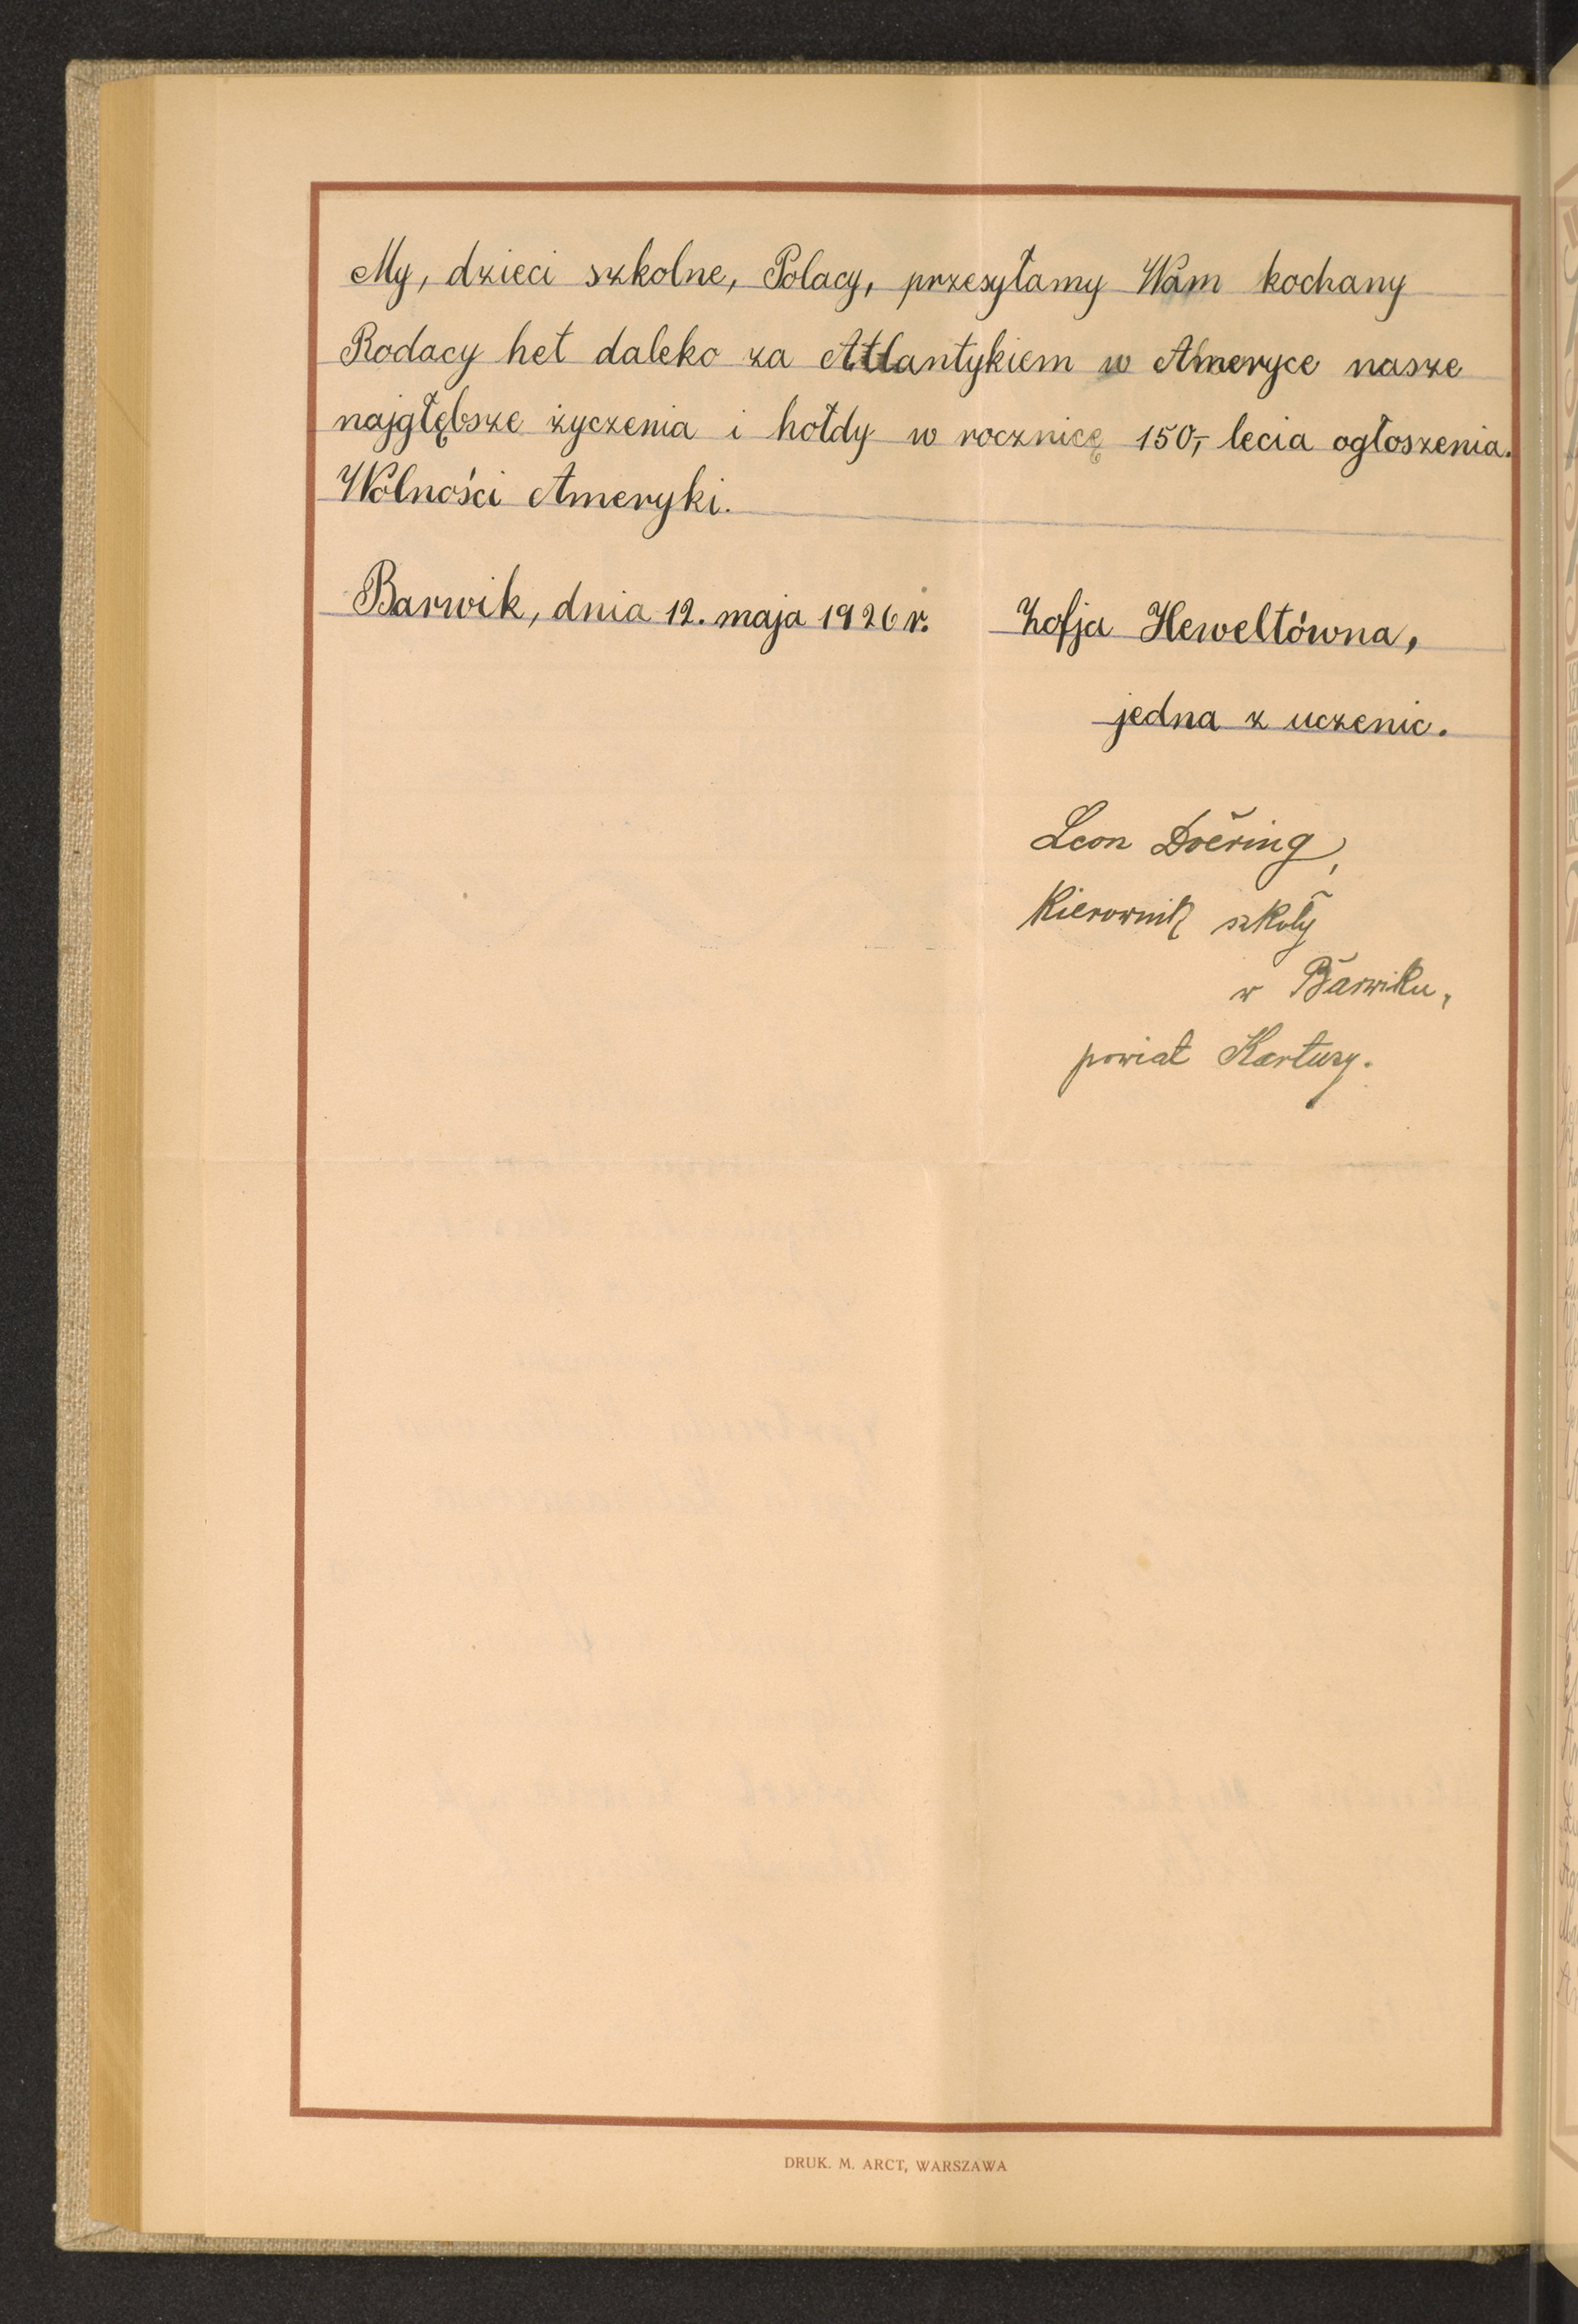 My, dzieci szkolne, Polacy, przesyłamy Wam kochany
Rodacy het daleko za Atlantykiem w Ameryce nasze
najgłębsze życzenia i hołdy w rocznicę 150,- lecia ogłoszenia.
Wolności Ameryki.
Barwik, dnia 12. maja 1926 r.
Zofja Heweltówna,
jedna z uczenic.
Leon Doering,
Kierownik szkoły
w Barwiku,
powiat Kartuzy.
DRUK. M. ARCT, WARSZAWA